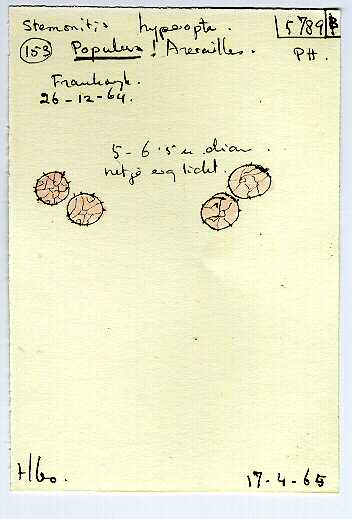 Stemonitis hyperopta. 5789B
(153) Populus! Arerailles. PH.
Frankrijk.
26-12-64.
5-6.5 µ diam.
netje erg licht.
17-4-65